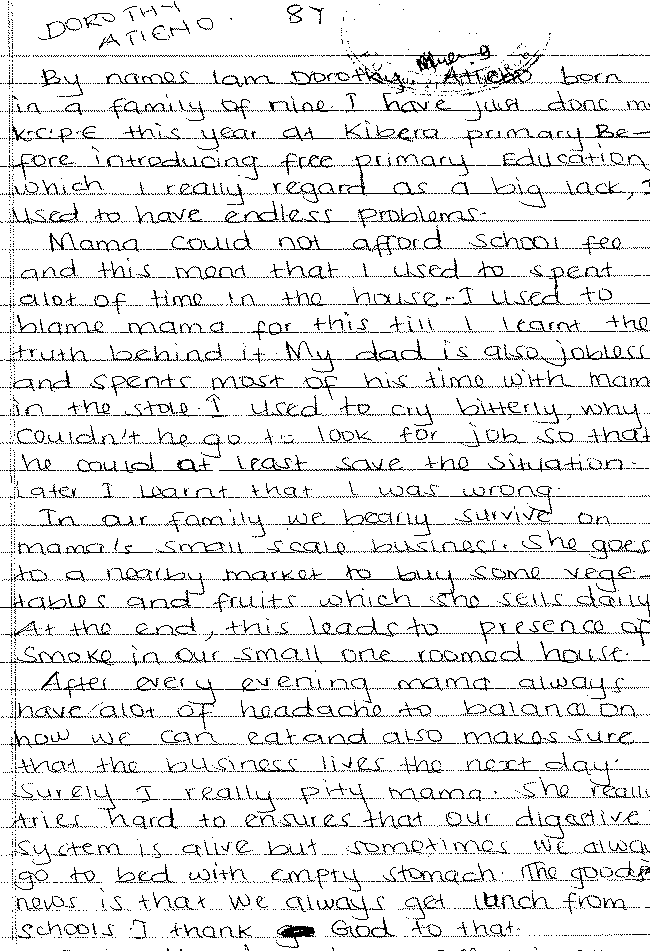 DOROTHY
ATIENO
8Y
By names I am Dorothy Atieno born
in a family of nine I have just done m
K.C.P.E this year at Kibera primary Be-
fore introducing free primary Education
which I really regard as a big lack, I
used to have endless problems.
Mama could not afford school fee
and this ment that I used to spent
alot of time in the house. I used to
blame mama for this till I learnt the
truth behind it My dad is also jobless
and spents most of his time with mam
in the stole. I used to cry bitterly, why
couldn't he go to look for job so that
he could at least save the situation.
Later I learnt that I was wrong.
In our family we bearly survive on
mama's small scale business. She goes
to a nearby market to buy some vege-
tables and fruits which she sells daily
At the end, this leads to presence of
smoke in our small one roomed house.
After every evening mama always
have alot of headache to balance on
how we can eat and also makes sure
that the business lives the next day.
Surely I really pity mama. She reall
tries hard to ensures that our digestive
system is alive but sometimes we alwa
go to bed with empty stomach. The goods
news is that we always get lunch from
schools I thank God to that.